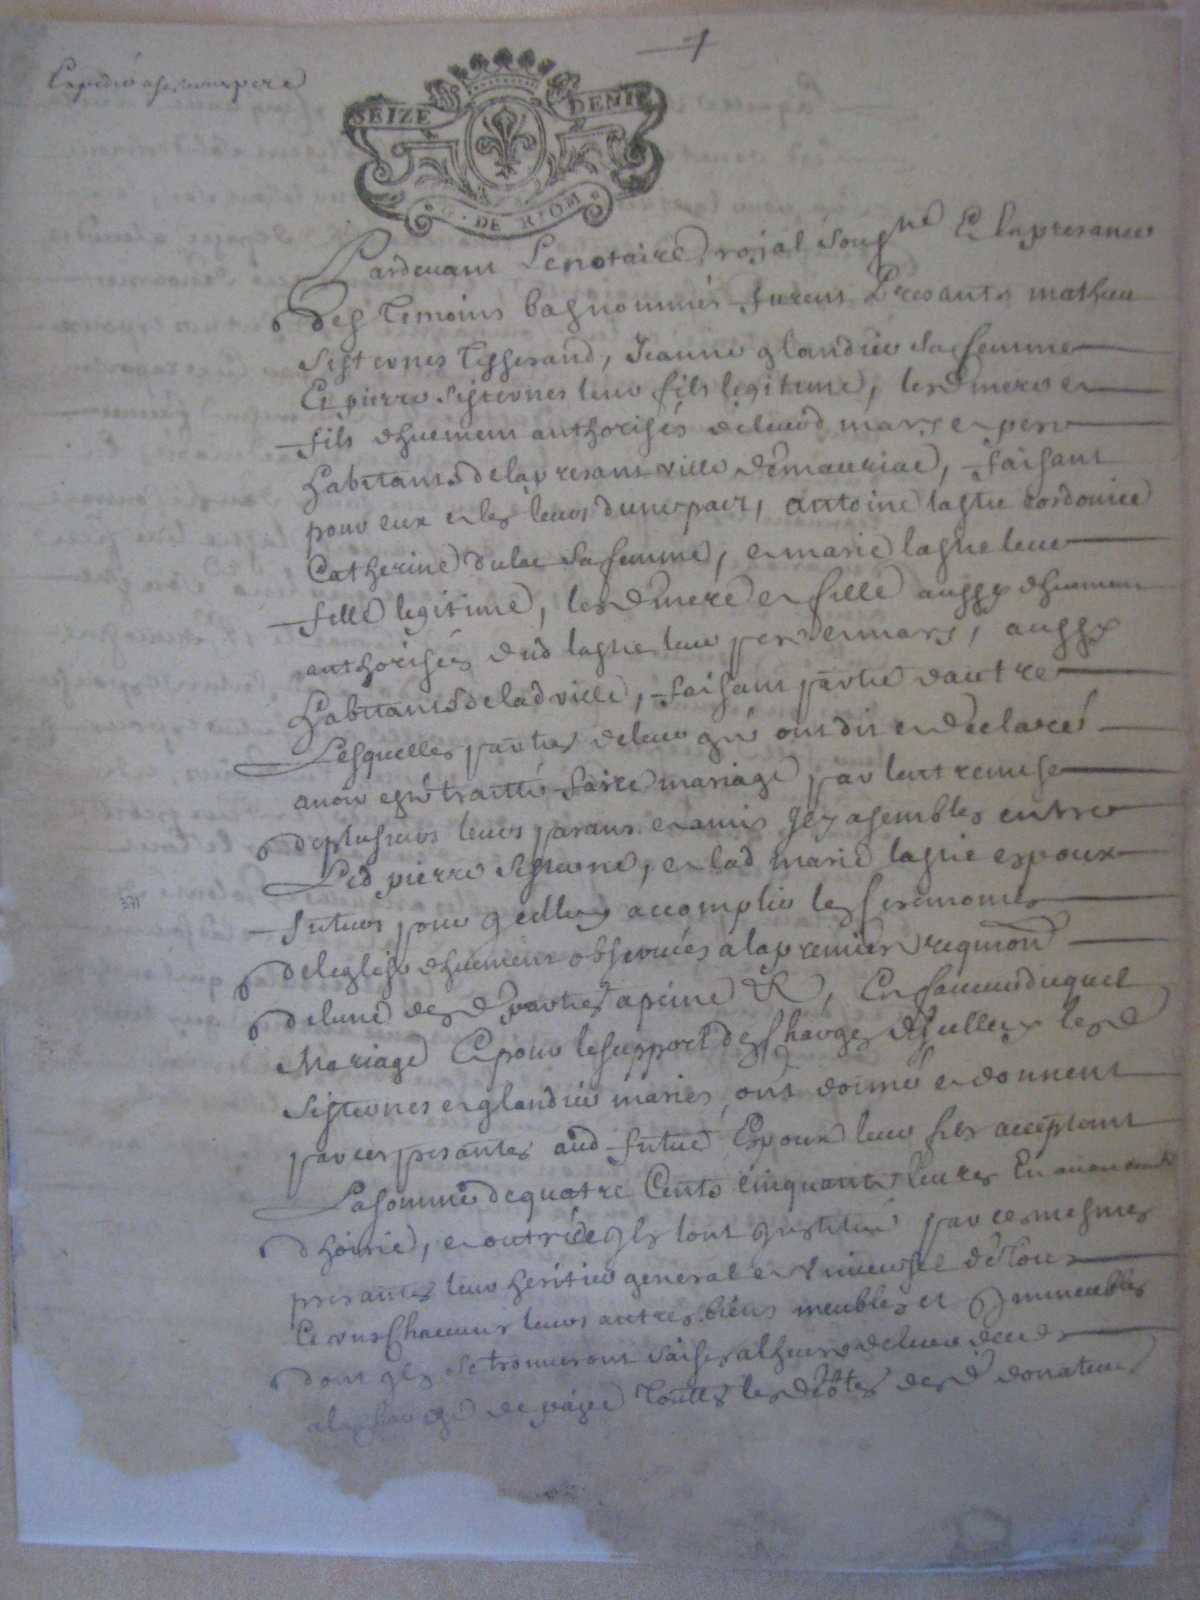 1
Expedié père
SEIZE DENIE
G · DE RIOM
Pardevant Le notaire royal soubsne Et la presance
des temoins bas nommés furent Presants mathieu
Sistevnes tisserand, Jeanne glandiere sa femme
Et pierre Sistevnes leur fils legitime, lesd mere et
fils duement authorisés de leurd mary et pere
habitants de la presant ville de mauriac, faisant
pour eux et les leurs d'une part, antoine lastie cordonier
Catherine dulac sa femme, et marie lastie leur
fille legitime, lesd mere et fille aussy duement
authorisées dud lastie leur pere et mary, aussy
habitants de lad ville, faisant partie d'autre
Lesquelles parties de leur gré ont dit et declaré
avoir esté traitté faire mariage par l'entremise
de plusieurs leurs parans et amis ycy asembles entre
Led pierre Sistevne, et lad marie lastie espoux
futurs pour ycelluy accomplir les seremonies
de leglise duement observées a la premiere requisition
de lune desd parties a peine &, En faveur duquel
Mariage Et pour le support des Charges d'ycelluy lesd
Sistevnes et glandiere mariés ont donné et donnent
par ces presantes aud futur Epoux leur fils acceptant
La somme de quatre Cents cinquante livres En avancement
d'hoirie, et outre ce ils l'ont ynstitué par ces mesmes
presantes leur heritier general et universel de tous
Et uns Chacuns leurs autres biens meubles et ymmeubles
dont ils se trouveront saisis a lheure de leur deceds
a la charge de payer touttes les debtes desd donateurs